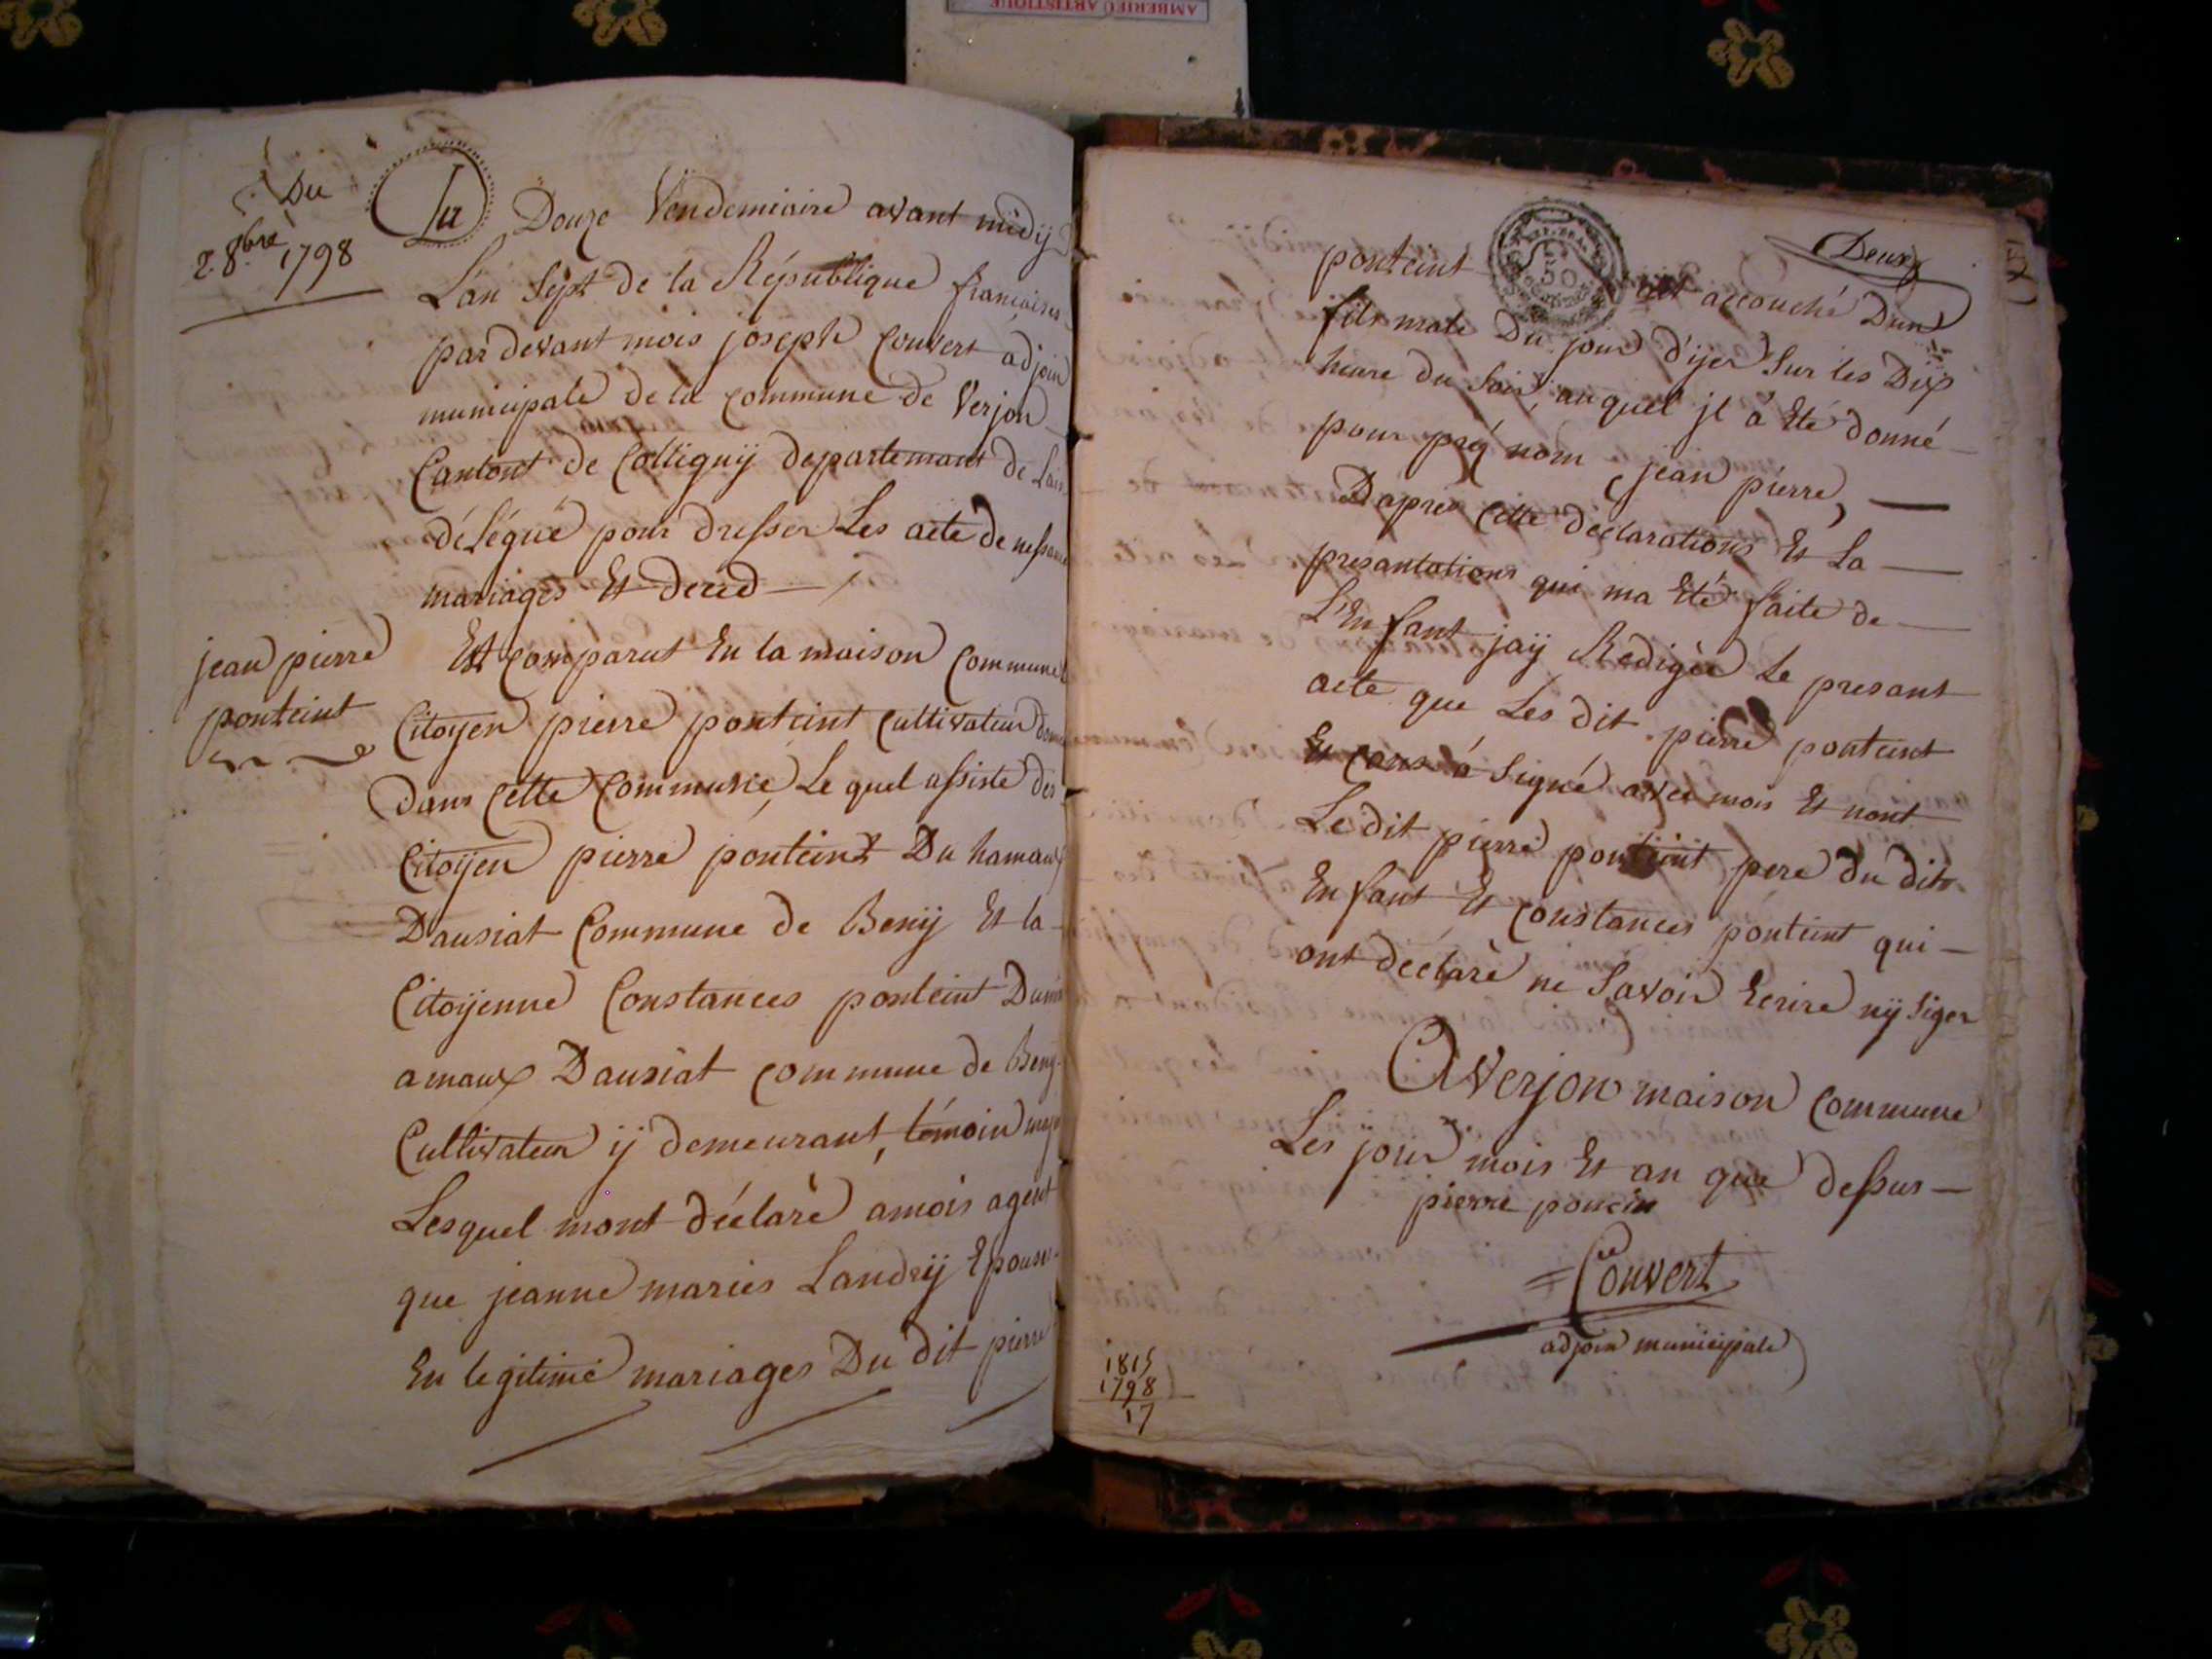 AMBERIEU ARTISTIQUE
Du
2. 8bre 1798
Du Douze Vendemiaire avant midij
Lan Sept de la République francaises
par devant mois joseph Couvert adjoin
municipale de la Commune de Verjon
Cantont de Colligny departemant de Lain
délégué pour dresser Les acte de nessance
mariages Et deced
jean pierre
ponteint
Est Comparut En la maison Commune
Citoyen pierre ponteint Cultivateur
dans Cette Commune, Le quel assiste des
Citoyen pierre ponteint Du hamaux
Dausiat Commune de Beny Et la
Citoyenne Constances ponteint Dum
amaux Dausiat Commune de Beny
Cultivateur ij demeurant, témoin
Lesquel mont déclarè amois agent
que jeanne maries Landrÿ Epouse
En legitime mariages Du dit pierre
Deux
ponteint est accouché Dun
fils male Du jour d'ijer Sur les Dix
heure du Soir, auquel jl à Eté donné
pour pré nom jean pierre,
Dapres Cette déclarations Et La
presantations qui ma Eté faite de
L'Enfant jaÿ Redigée Le presant
acte que Les dit pierre ponteint
Et à Signé avec mois Et nont
Le dit pierre ponteint pere du dit
Enfant Et Constances ponteint qui
ont déclarè ne Savoir Ecrire nÿ Siger
A Verjon maison Commune
Les jour mois Et an que dessus
pierre poncin
= Couvert
adjoin municipale
1815
1798
17